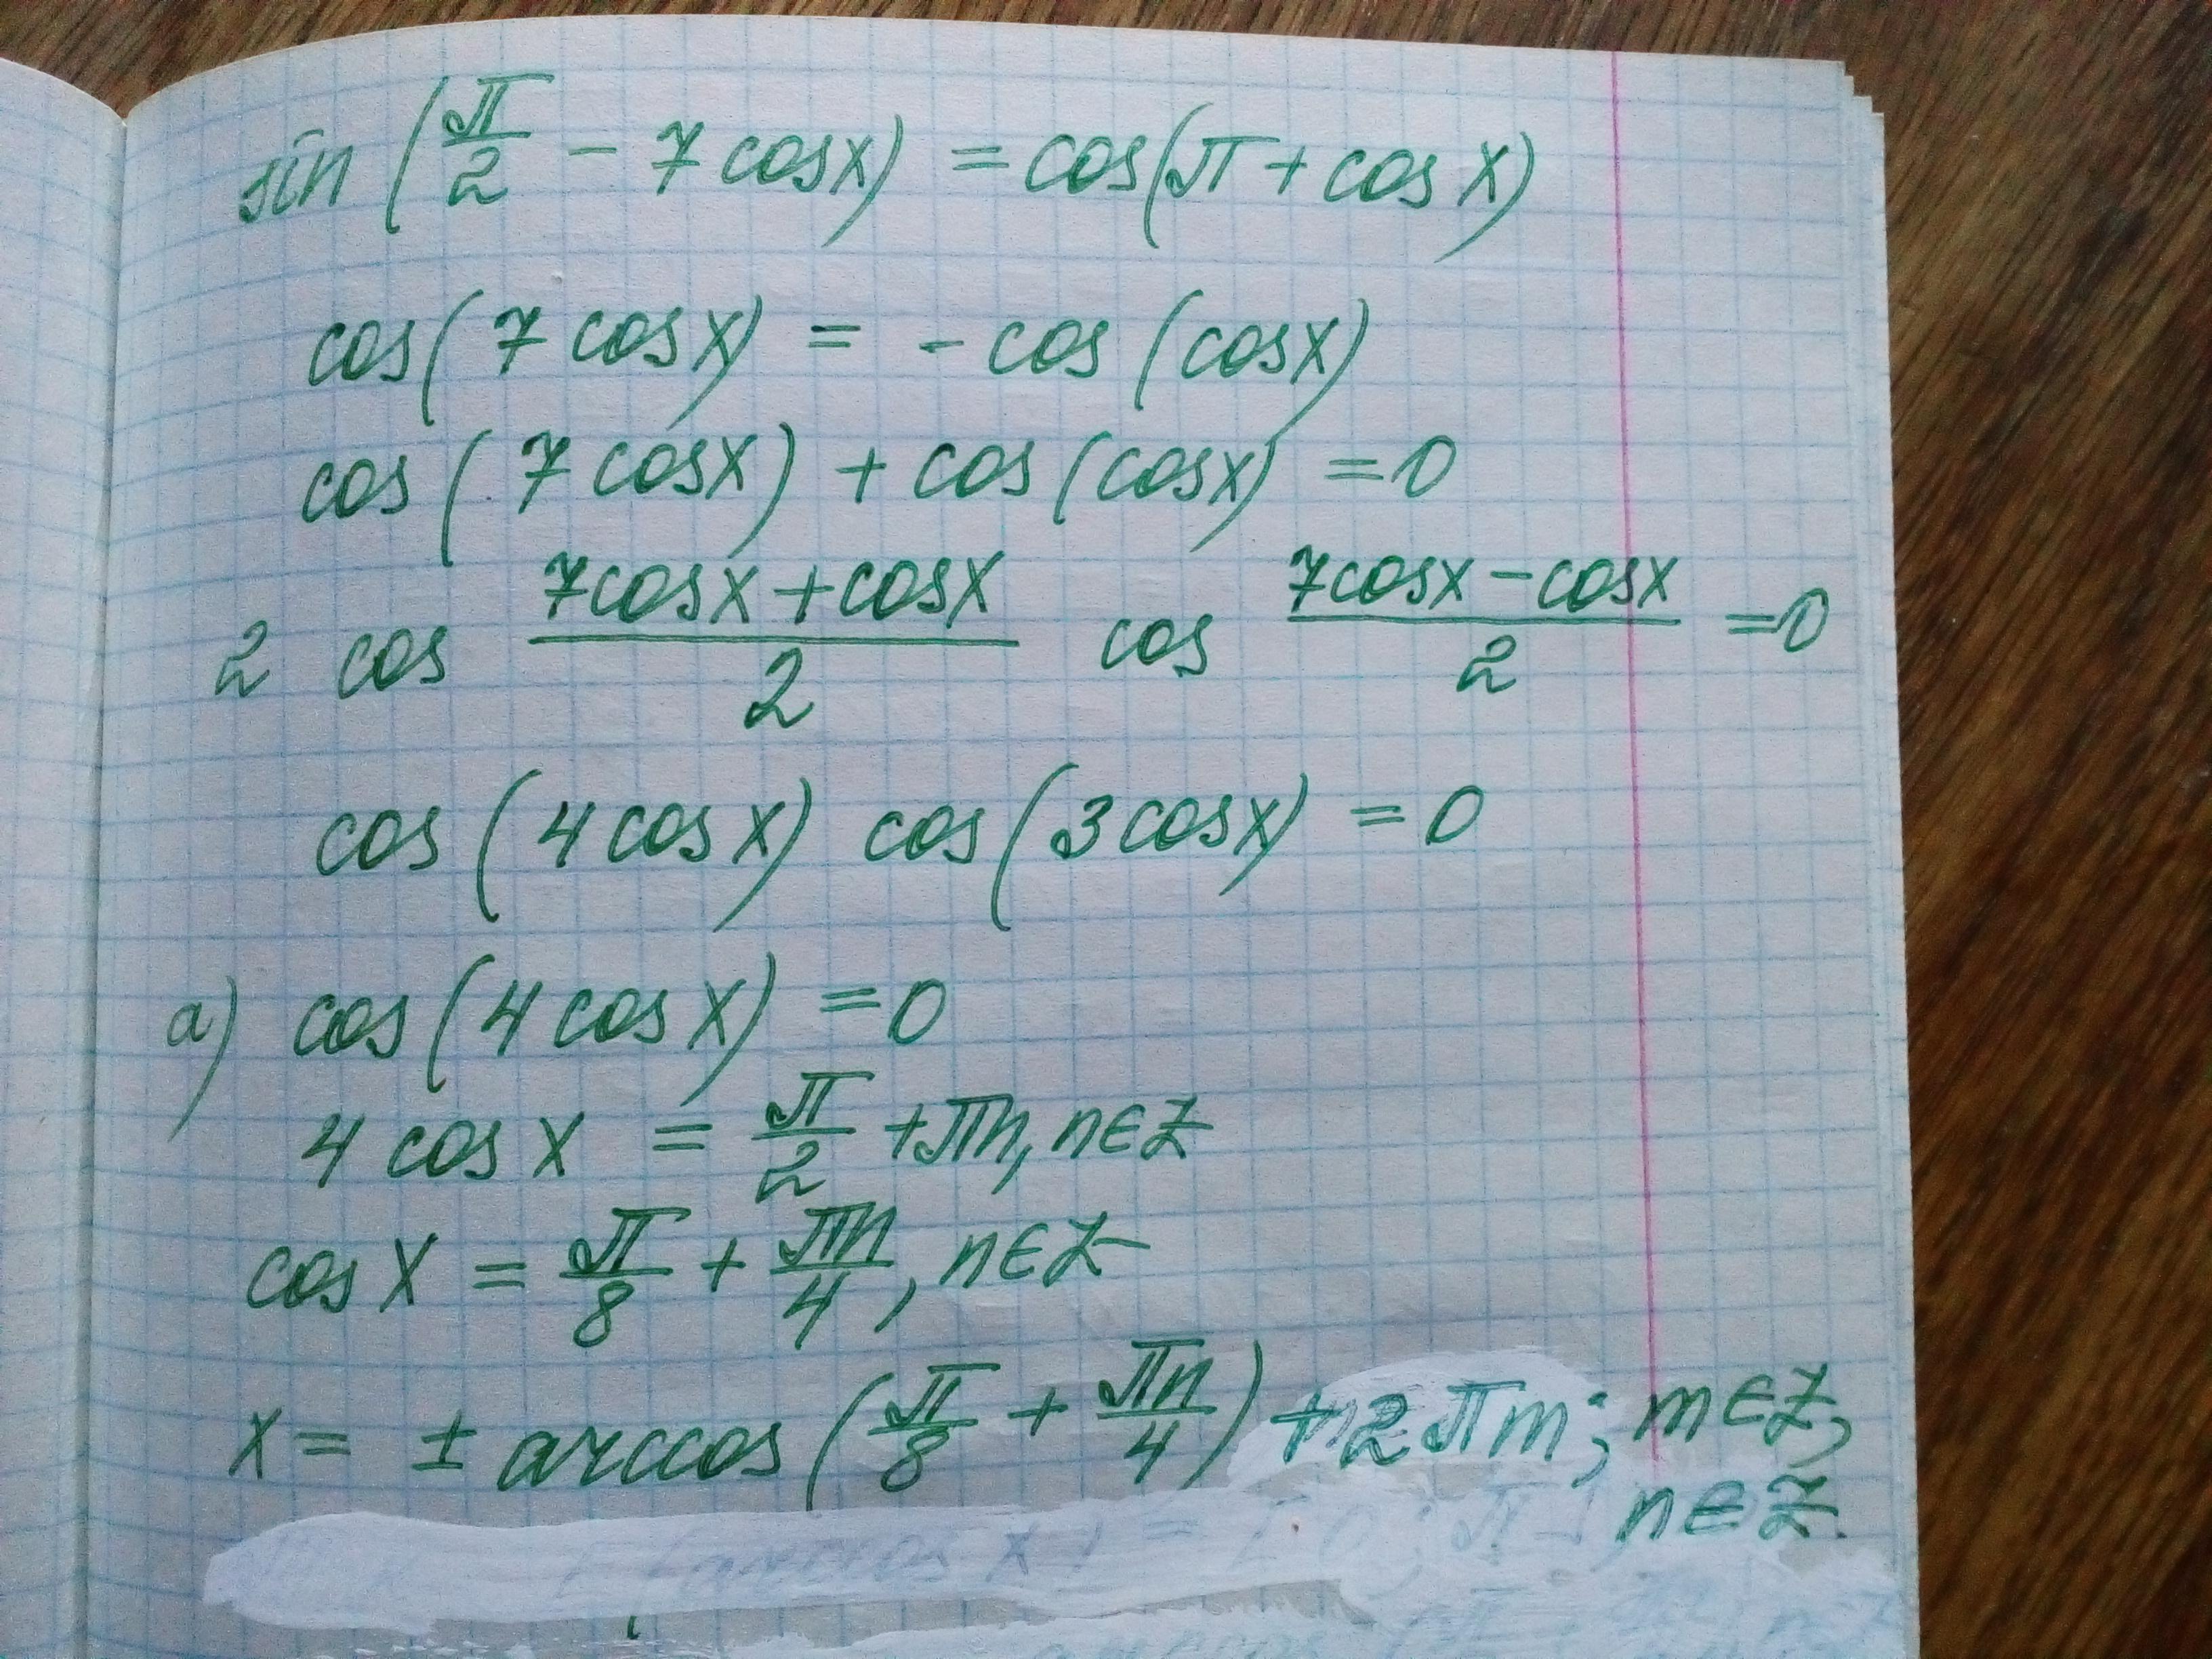 sin (π/2 - 7 cosx) = cos(π + cos x)
cos(7 cosx) = - cos (cosx)
cos(7 cosx) + cos(cosx) = 0
2 cos (7cosx + cosx)/2 cos (7cosx - cosx)/2 = 0
cos(4 cosx) cos(3cosx) = 0
a) cos(4 cosx) = 0
4 cos x = π/2 + πn, n∈Z
cos x = π/8 + πn/4, n∈Z
x = ± arccos(π/8 + πn/4) + 2πm; m∈Z,
n∈Z.